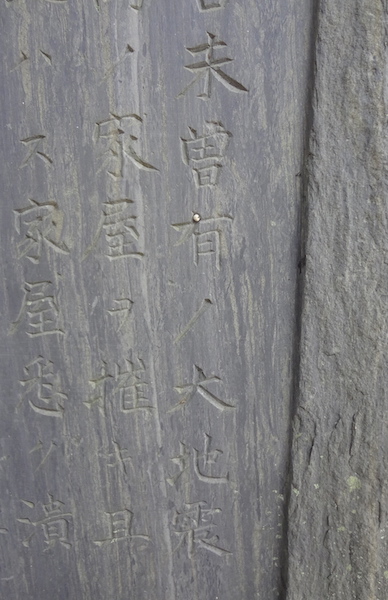 未曽有ノ大地震
イ家屋ヲ摧キ具
ハス家屋悉ク潰